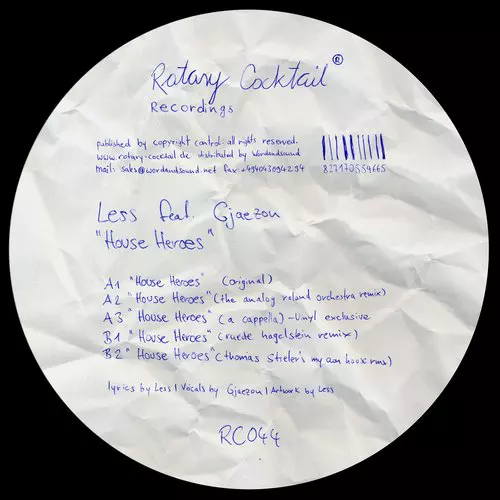 Rotary Cocktail ®
Recordings
published by copyright control all rights reserved.
www.rotary-cocktail.de distributed by Wordandsound
mail: sales@wordandsound.net fax +494043094254
827170554665
Less feat. Gjaezon
"House Heroes"
A1 "House Heroes" (original)
A2 "House Heroes" (the analog roland orchestra remix)
A3 "House Heroes" (a cappella) - Vinyl exclusive
B1 "House Heroes" (ruede hagelstein remix)
B2 "House Heroes" (thomas Stieler's my aan rmx)
lyrics by Less | Vocals by Gjaezon | Artwork by Less
RC044